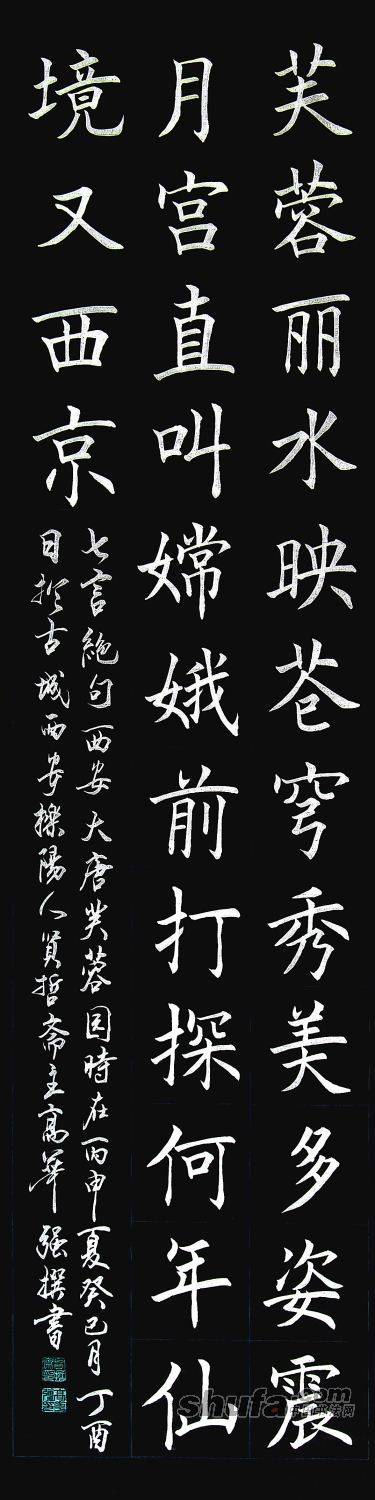 芙蓉丽水映苍穹秀美多姿震
月宫直叫嫦娥前打探何年仙
境又西京
七言绝句西安大唐芙蓉园时在丙申夏癸巳月丁酉
日于古城西安栎阳人贤哲斋主高华强撰书
shufa.com
书法网